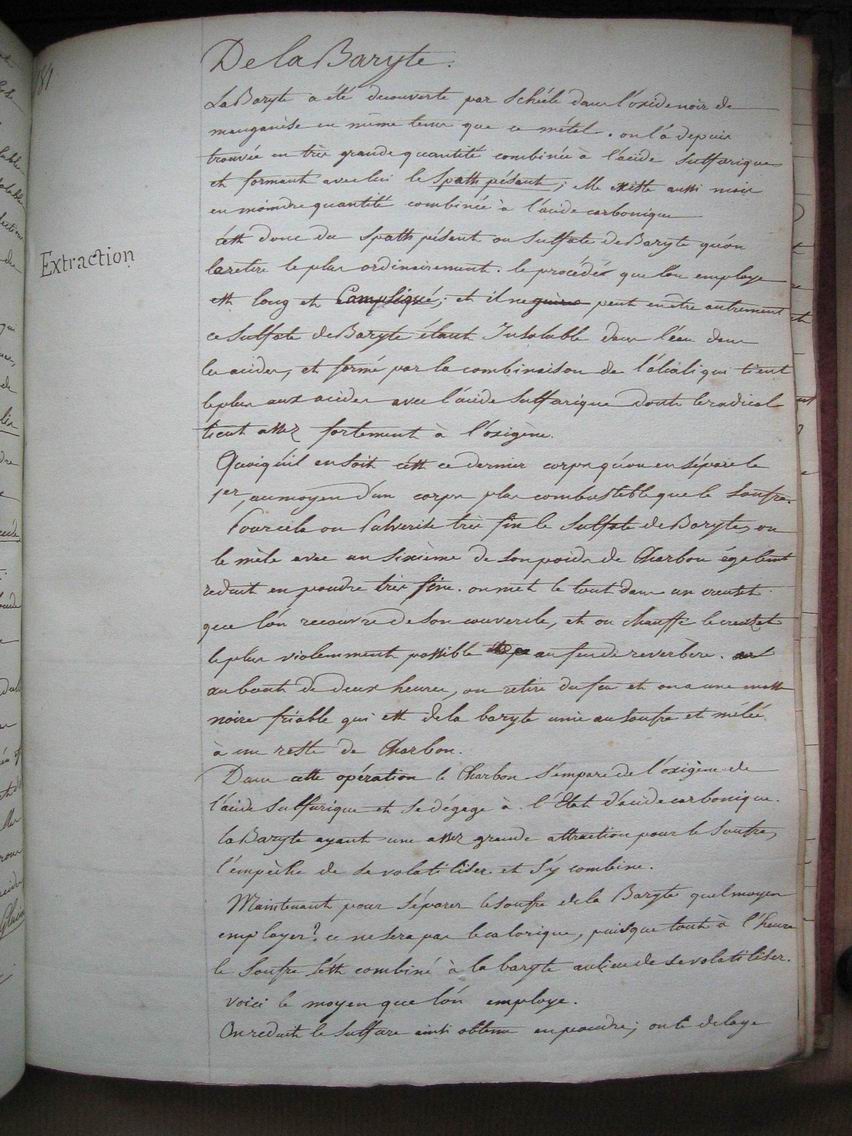 181
De la Baryte.
La Baryte a été decouverte par Schéele dans l'oxide noir de
manganèse en même tems que ce métal. on l'a depuis
trouvée en très grande quantité combinée à l'acide sulfurique
et formant avec lui le Spath pésant; elle existe aussi mais
en moindre quantité combinée à l'acide carbonique
C'est donc du Spath pésant ou Sulfate de Baryte qu'on
la retire le plus ordinairement. le procédés que l'on employe
Extraction
est long et Compliqué; et il ne guère peut en être autrement
ce Sulfate de Baryte étant Insoluble dans l'eau dans
les acides, et formé par la combinaison de l'alcali qui tient
le plus aux acides avec l'acide Sulfurique dont le radical
tient assez fortement à l'oxigène.
Quoiqu'il en soit c'est ce dernier corps qu'on en sépare le
1er, au moyen d'un corps plus combustible que le Soufre.
Pour cela on Pulverise très fin le Sulfate de Baryte, on
le mèle avec un sixième de son poids de Charbon également
reduit en poudre très fine. on met le tout dans un creuset
que l'on recouvre de son couvercle, et on chauffe le creuset
le plus violemment possible au feu de reverbère.
au bout de deux heures, on retire du feu et on a une masse
noire friable qui est de la baryte unie au soufre et mélée
à un reste de Charbon.
Dans cette opération le Charbon s'empare de l'oxigène de
l'acide Sulfurique et se dégage à l'Etat d'acide carbonique.
la Baryte ayant une assez grande attraction pour le Soufre,
l'empèche de se volatiliser et s'y combine.
Maintenant pour séparer le soufre de la Baryte quel moyen
employer? ce ne sera pas le calorique, puisque tout à l'heure
le Soufre s'est combiné à la baryte au lieu de se volatiliser.
voici le moyen que l'on employe.
On reduit le Sulfure ainsi obtenu en poudre; on le delaye